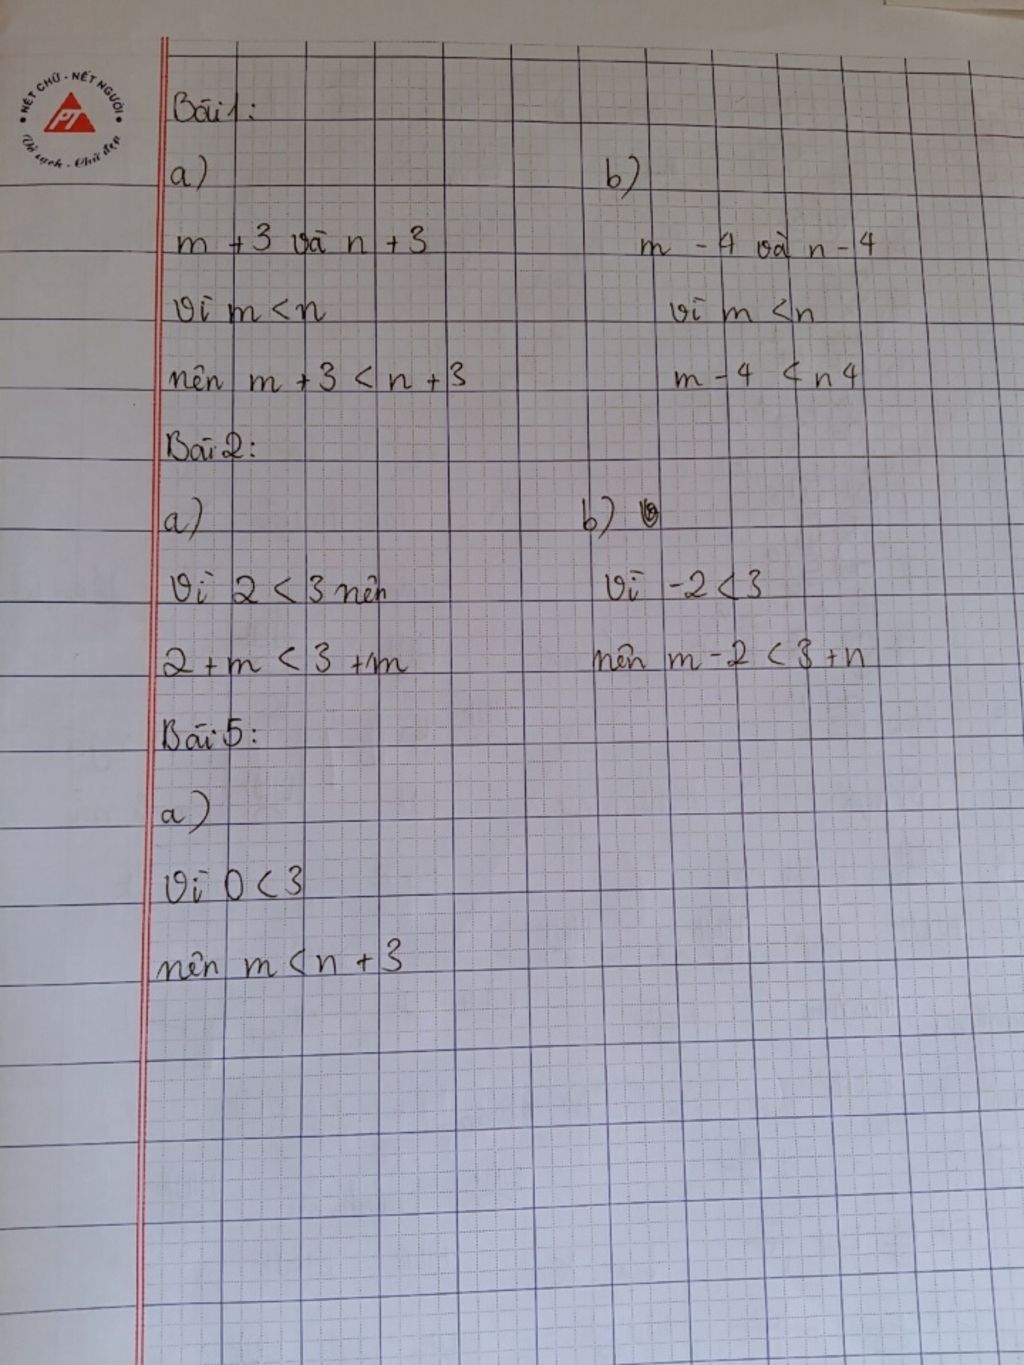 NÉT CHỮ - NẾT NGƯỜI
PT
Vở sạch - Chữ đẹp
Bài 1:
a)
m + 3 và n + 3
Vì m < n
nên m + 3 < n + 3
b)
m - 4 và n - 4
Vì m < n
m - 4 < n 4
Bài 2:
a)
Vì 2 < 3 nên
2 + m < 3 + m
b)
Vì -2 < 3
nên m - 2 < 3 + n
Bài 5:
a)
Vì 0 < 3
nên m < n + 3